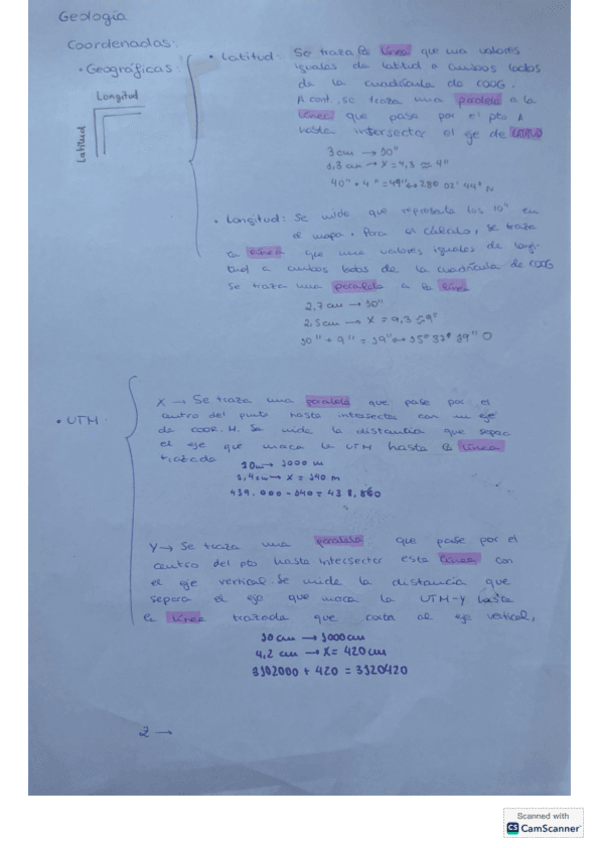 Geología
Coordenadas:
• Geográficas
Longitud
Latitud
• Latitud: Se traza la línea que una valores
iguales de latitud a ambos lados
de la cuadrícula de COOG.
A cont, se traza una paralela a la
línea que pasa por el pto A
hasta intersectar el eje de
3 cm → 10"
1,3 cm → x = 4,3 ≈ 4"
40" + 4" = 02' 44" N
• Longitud: Se mide que los 10" en
el mapa. Para el cálculo, se traza
la línea que une valores iguales de long-
itud a ambos lados de la cuadrícula de COOG
Se traza una paralela a la línea
2,7 cm → 10"
2,5 cm → x = 9,3 ≈ 9"
30" + 9" = 39" 37' 39" O
• UTM
X → Se traza una paralela que pase por el
centro del punto hasta intersectar con un eje
de COOR. H. Se mide la distancia que separa
el eje que marca la UTM hasta la línea
trazada
10cm → 1000 m
1,4cm → x = 140 m
439.000 - 140 = 438,860
Y → Se traza una paralela que pase por el
centro del pto hasta intersectar esta línea con
el eje vertical. Se mide la distancia que
separa el eje que marca la UTM-Y hasta
la línea trazada que corta al eje vertical,
10 cm → 1000 cm
4,2 cm → x = 420 cm
3102000 + 420 = 3120420
Z →
Scanned with
CS CamScanner